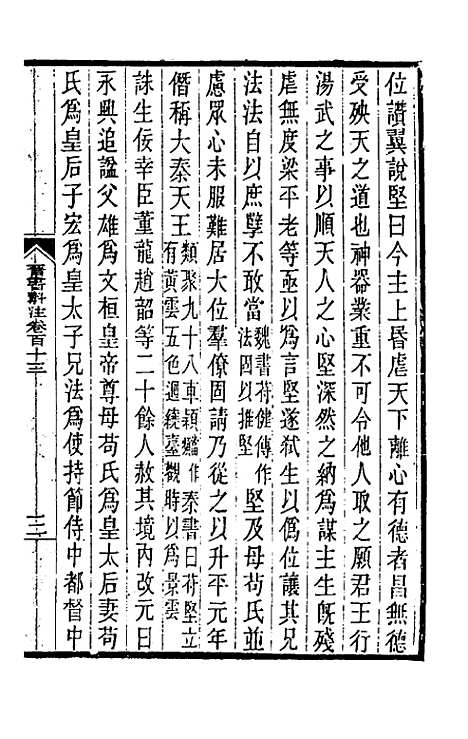 位讚翼說堅曰今主上昏虐天下離心有德者昌無德
受殃天之道也神器業重不可令他人取之願君王行
湯武之事以順天人之心堅深然之納為謀主生旣殘
虐無度梁平老等亟以為言堅遂弑生以僞位讓其兄
法法自以庶孽不敢當魏書苻健傳作法固以推堅堅及母苟氏並
慮眾心未服難居大位羣僚固請乃從之以升平元年
僭稱大秦天王類聚九十八車頻秦書曰苻堅立有黃雲五色迴繞臺觀時以為景雲
誅生佞幸臣董龍趙韶等二十餘人赦其境內改元曰
永興追諡父雄為文桓皇帝尊母苟氏為皇太后妻苟
氏為皇后子宏為皇太子兄法為使持節侍中都督中
晉書斠注卷百十三
三